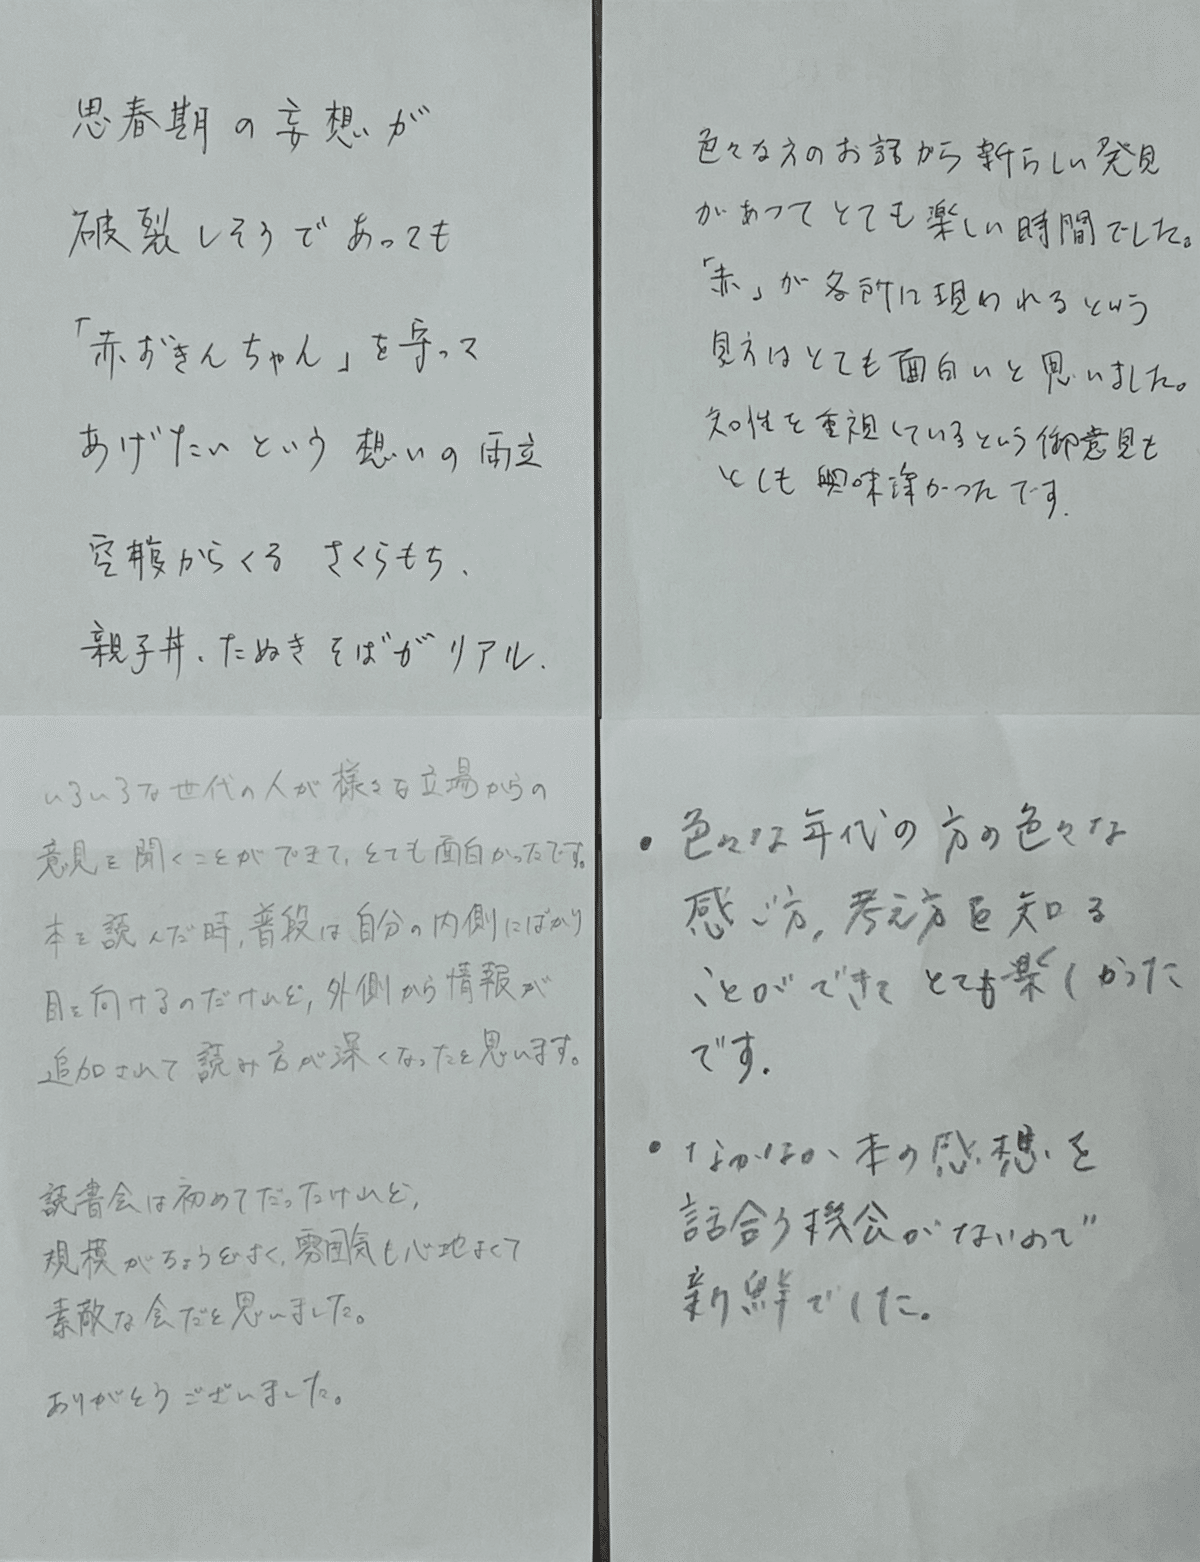 思春期の妄想が
破裂しそうであっても
「赤ずきんちゃん」を守って
あげたいという想いの両立
空腹からくる さくらもち、
親子丼、たぬきそばがリアル.
色々な方のお話から新らしい発見
があってとても楽しい時間でした。
「赤」が各所に現われるという
見方はとても面白いと思いました。
知性を重視しているという御意見も
とても興味深かったです.
いろいろな世代の人が様々な立場からの
意見を聞くことができて、とても面白かったです。
本を読んだ時、普段は自分の内側にばかり
目を向けるのだけれど、外側から情報が
追加されて読み方が深くなったと思います。
読書会は初めてだったけれど、
規模がちょうどよく、雰囲気も心地よくて
素敵な会だと思いました。
ありがとうございました。
・色々な年代の方の色々な
感じ方、考え方を知る
ことができてとても楽しかった
です.
・なかなか本の感想を
話合う機会がないので
新鮮でした。